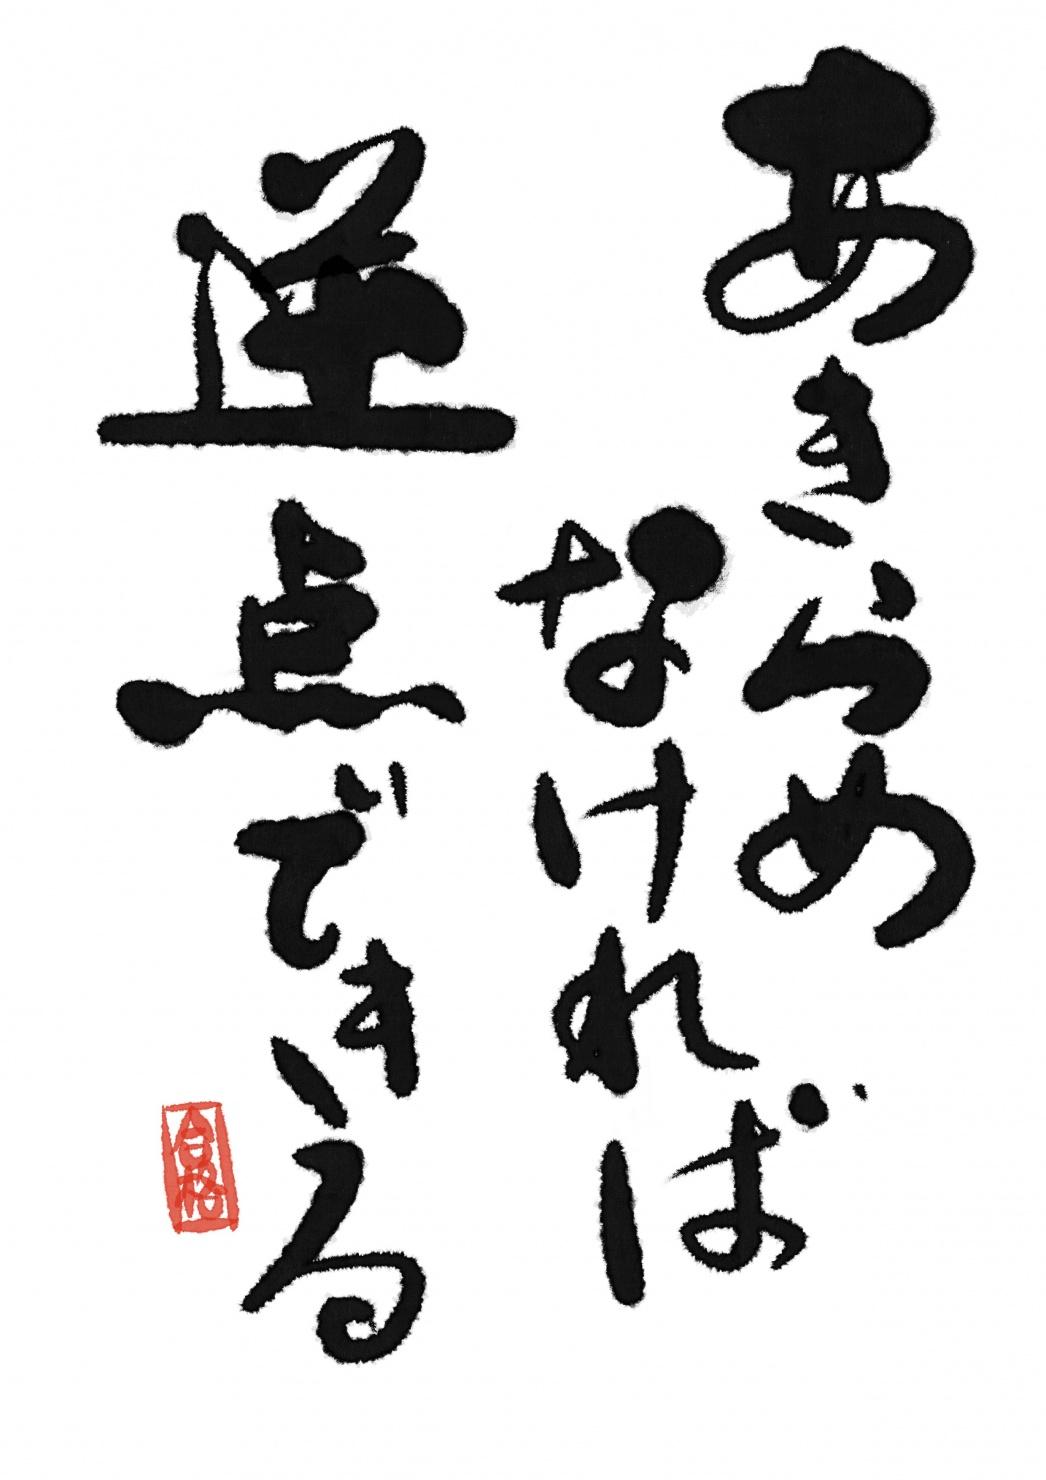 あきらめ
なければ
逆点できる
合格